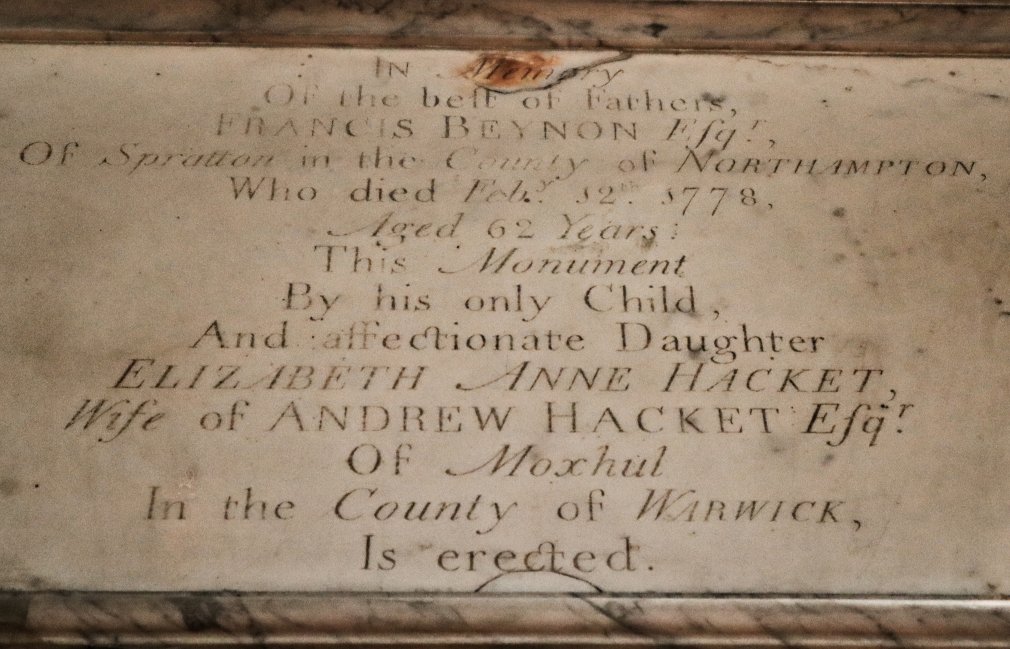 In Memory
Of the beſt of Fathers,
FRANCIS BEYNON Eſqr,
Of Spratton in the County of NORTHAMPTON,
Who died Feb.y 12th. 1778,
Aged 62 Years:
This Monument
By his only Child,
And affectionate Daughter
ELIZABETH ANNE HACKET,
Wife of ANDREW HACKET Eſqr.
Of Moxhul
In the County of WARWICK,
Is erected.